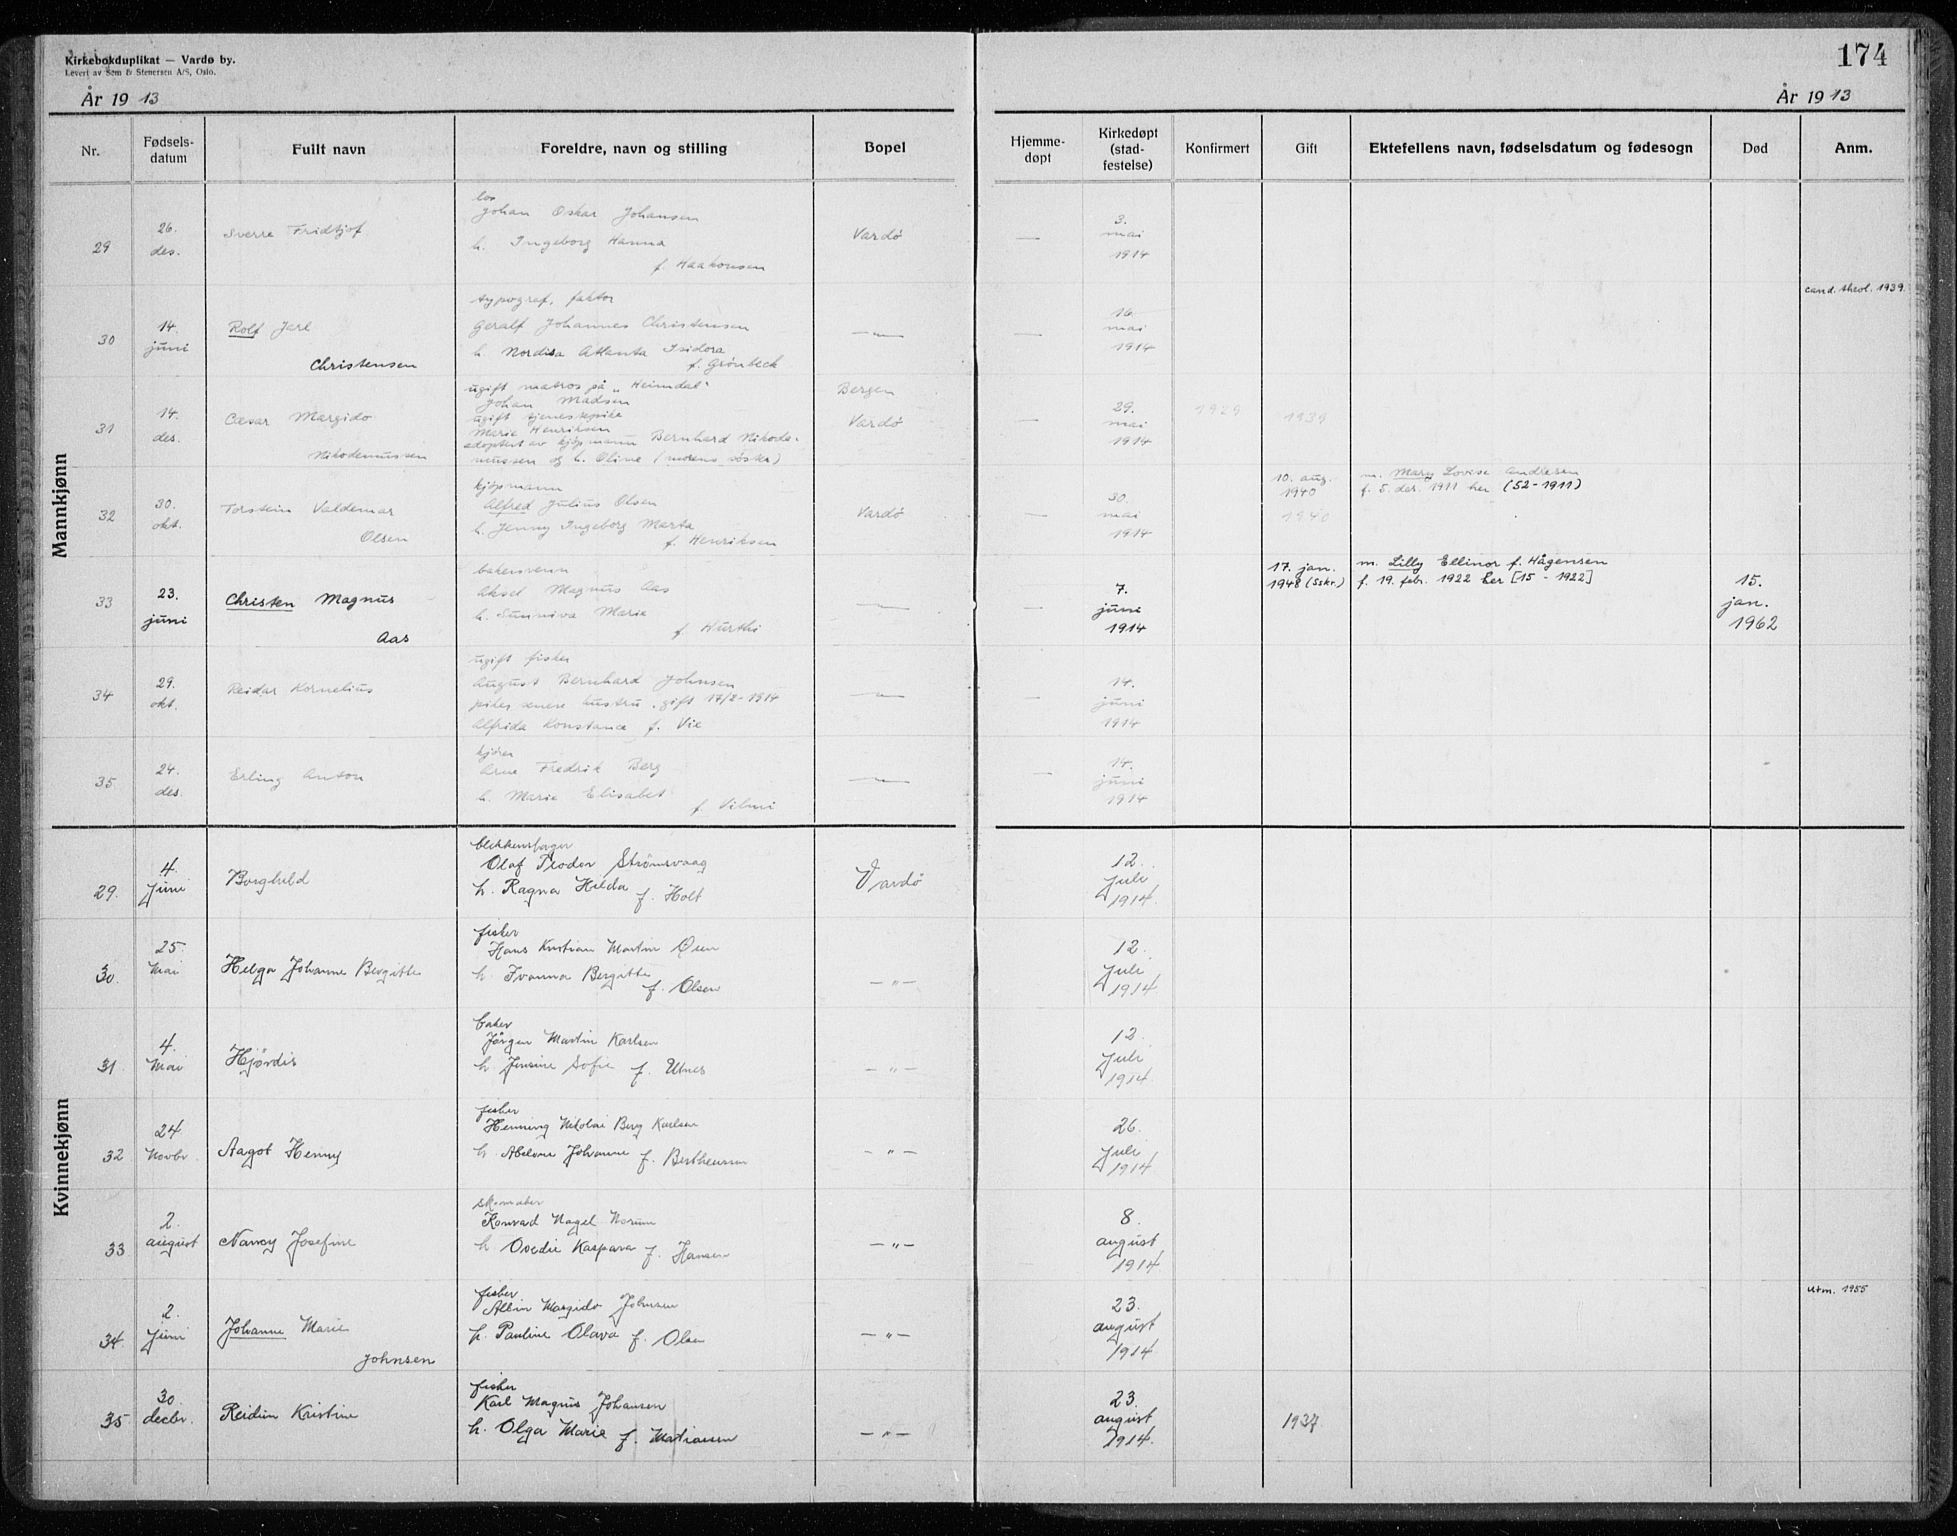 Kirkebokduplikat — Vardø by.
Levert av Sem & Stenersen A/S, Oslo.
174
År 1913
År 1913
Nr.
Fødsels-
datum
Fullt navn
Foreldre, navn og stilling
Bopel
Hjemme-
døpt
Kirkedøpt
(stad-
festelse)
Konfirmert
Gift
Ektefellens navn, fødselsdatum og fødesogn
Død
Anm.
Mannkjønn
29
26.
des.
Sverre Fridtjof
los
Johan Oskar Johansen
h. Ingeborg Hanna
f. Haakonsen
Vardø
—
3.
mai
1914
30
14.
juni
Rolf Jarl
Christensen
typograf, faktor
Geralf Johannes Christensen
h. Nordisa Atlanta Isidora
f. Grønbeck
—"—
—
16.
mai
1914
cand. theol. 1939.
31
14.
des.
Cæsar Margido
Nikodemussen
ugift matros på „Heimdal"
Johan Madsen
ugift tjenestepike
Marie Henriksen
adoptert av kjøpmann Bernhard Nikode-
mussen og h. Oline (morens søster)
Bergen
Vardø
—
29.
mai
1914
1929
1939
32
30.
okt.
Torstein Valdemar
Olsen
kjøpmann
Alfred Julius Olsen
h. Jenny Ingeborg Marta
f. Henriksen
Vardø
30.
mai
1914
10. aug.
1940
1940
m. Mary Lovise Andresen
f. 5. des. 1911 her (52-1911)
33
23.
juni
Christen Magnus
Aas
bakersvenn
Aksel Magnus Aas
h. Sunniva Marie
f. Hurthi
—"—
—
7.
juni
1914
17. jan.
1948 (Sskr.)
m. Lilly Ellinor f. Hågensen
f. 19. febr. 1922 her [15 - 1922]
15.
jan.
1962
34
29.
okt.
Reidar Kornelius
ugift fisker
August Bernhard Johnsen
pike, senere hustru, gift 17/2-1914
Alfrida Konstance f. Vie
—"—
—
14.
juni
1914
35
24.
des.
Erling Anton
kjører
Arne Fredrik Berg
h. Marie Elisabet
f. Vilmi
—"—
—
14.
juni
1914
Kvinnekjønn
29.
4.
Juni
Borghild
blikkenslager
Olaf Teodor Strømsvaag
h. Ragna Hilda f. Holt
Vardø
12.
Juli
1914.
30.
25.
Mai
Helga Johanne Bergitte
fisker
Hans Kristian Martin Osen
h. Ivanna Bergitte
f. Olsen
— " —
12.
Juli
1914
31
4.
Mai
Hjørdis
baker
Jørgen Martin Karlsen
h. Jensine Sofie f. Utnes
— " —
12
Juli
1914.
32
24
Novbr.
Aagot Henny
fisker
Henning Nikolai Berg Karlsen
h. Abelone Johanne f. Bertheussen
— " —
26.
Juli
1914
33
2.
august
Nancy Josefine
skomaker
Konrad Nagel Norum
h. Ovedie Kaspara f. Hansen
— " —
8.
august
1914.
34
2.
Juni
Johanne Marie
Johnsen
fisker
Albin Margido Johnsen
h. Pauline Olava f. Olsen
— " —
23.
august
1914
utm. 1955
35
30.
decbr.
Reidun Kristine
fisker
Karl Magnus Johansen
h. Olga Marie f. Mathiassen
— " —
23.
august
1914.
1937